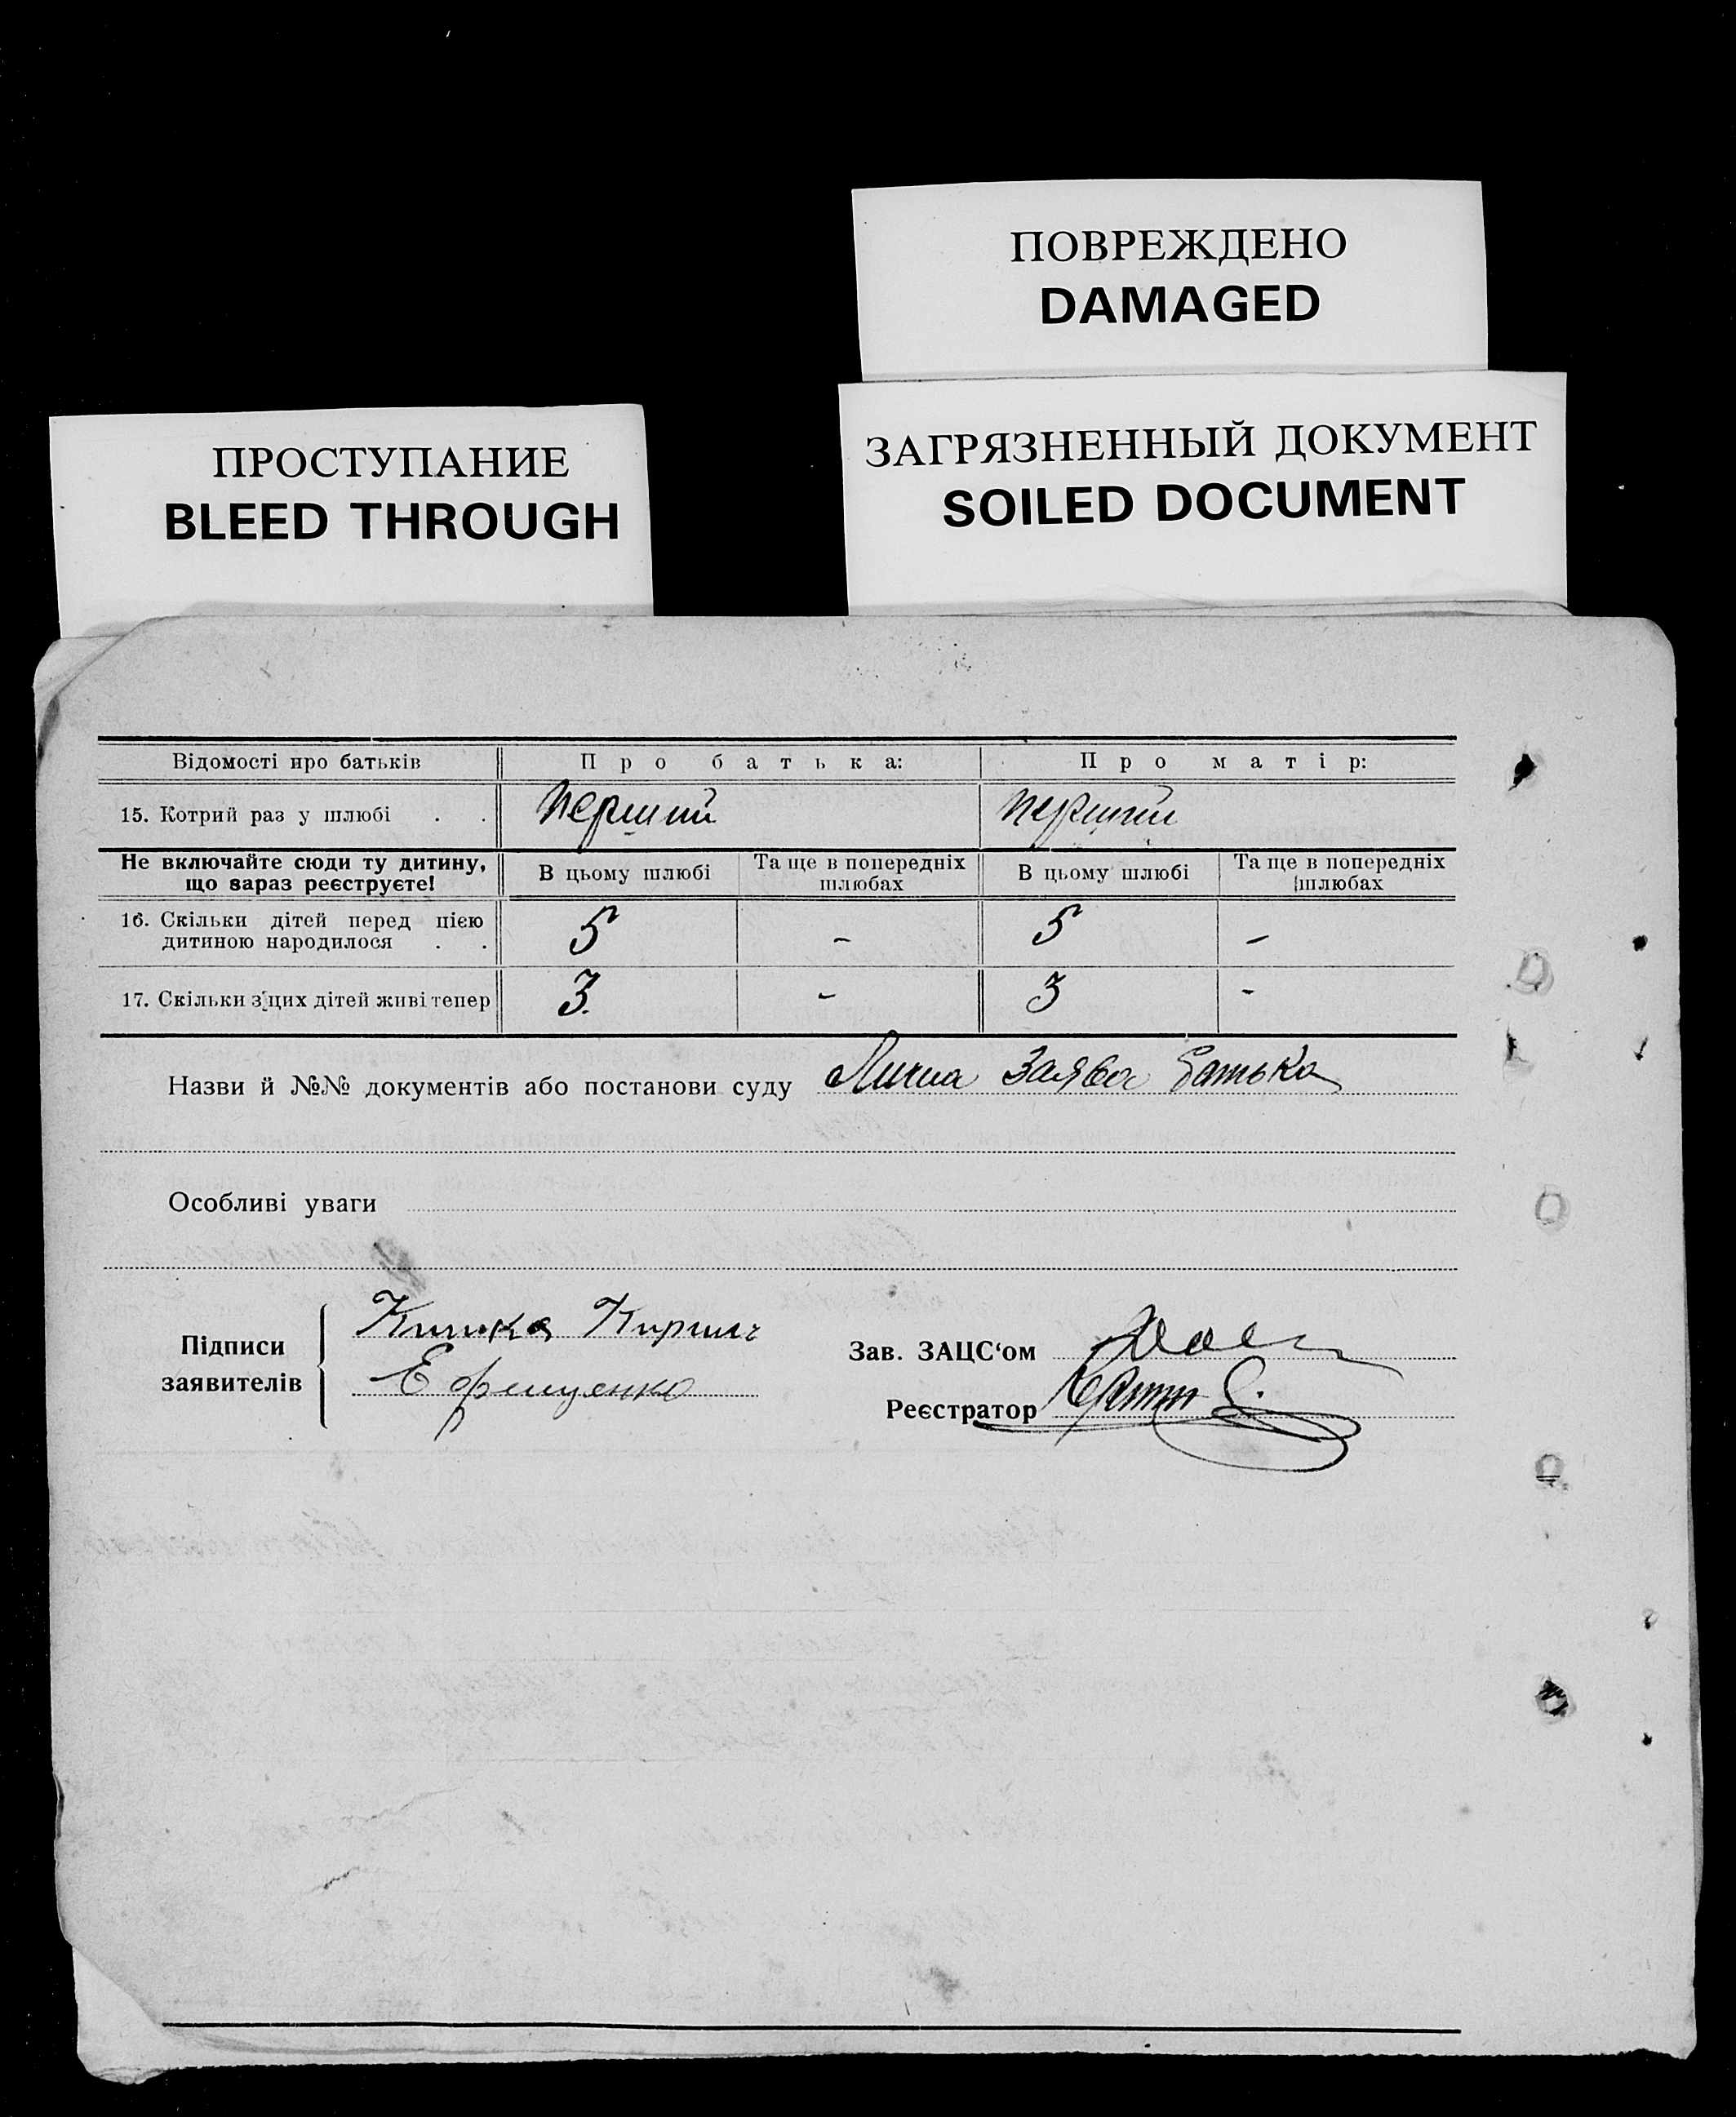 ПОВРЕЖДЕНО
DAMAGED
ПРОСТУПАНИЕ
BLEED THROUGH
ЗАГРЯЗНЕННЫЙ ДОКУМЕНТ
SOILED DOCUMENT
Відомості про батьків Про батька: Про матір:
15. Котрий раз у шлюбі . . Перший перший
Не включайте сюди ту дитину, що зараз реєструєте! В цьому шлюбі Та ще в попередніх шлюбах В цьому шлюбі Та ще в попередніх шлюбах
16. Скільки дітей перед цією
дитиною народилося . . 5 - 5 -
17. Скільки з цих дітей живі тепер 3. - 3 -
Назви й №№ документів або постанови суду Лична Заява батька
Особливі уваги
Підписи
заявителів
Ефищенко
Зав. ЗАЦС‘ом
Реєстратор